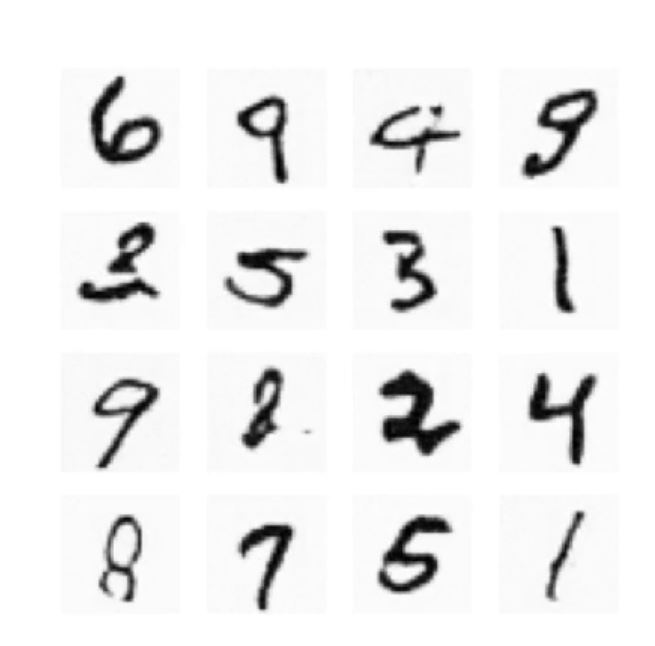 6 9 4 9
2 5 3 1
9 8 2 4
8 7 5 1